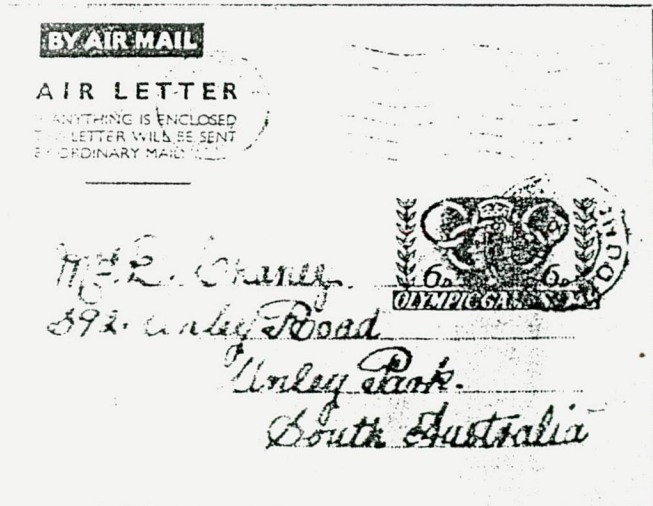 BY AIR MAIL
AIR LETTER
ANYTHING IS ENCLOSED
LETTER WILL BE SENT
BY ORDINARY MAIL
6D 6D
OLYMPIC GA S
Chaney.
592. Unley Road
Unley Park.
South Australia